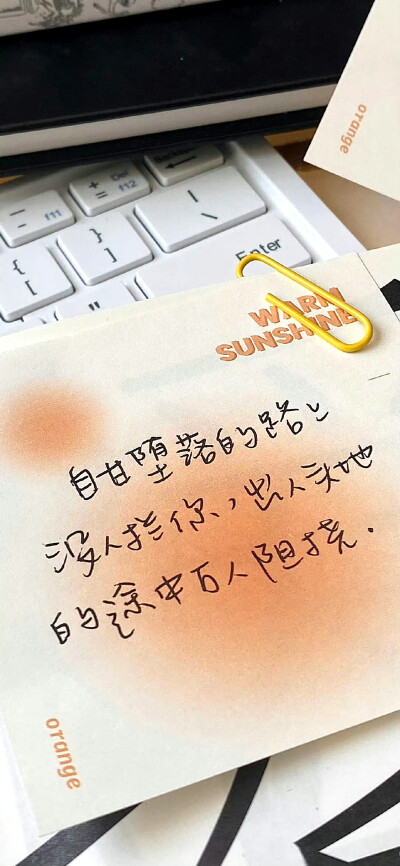 orange
Del
f11
f12
Enter
WARM
SUNSHINE
自甘堕落的路上
没人拦你，出人头地
的途中百人阻挠.
orange